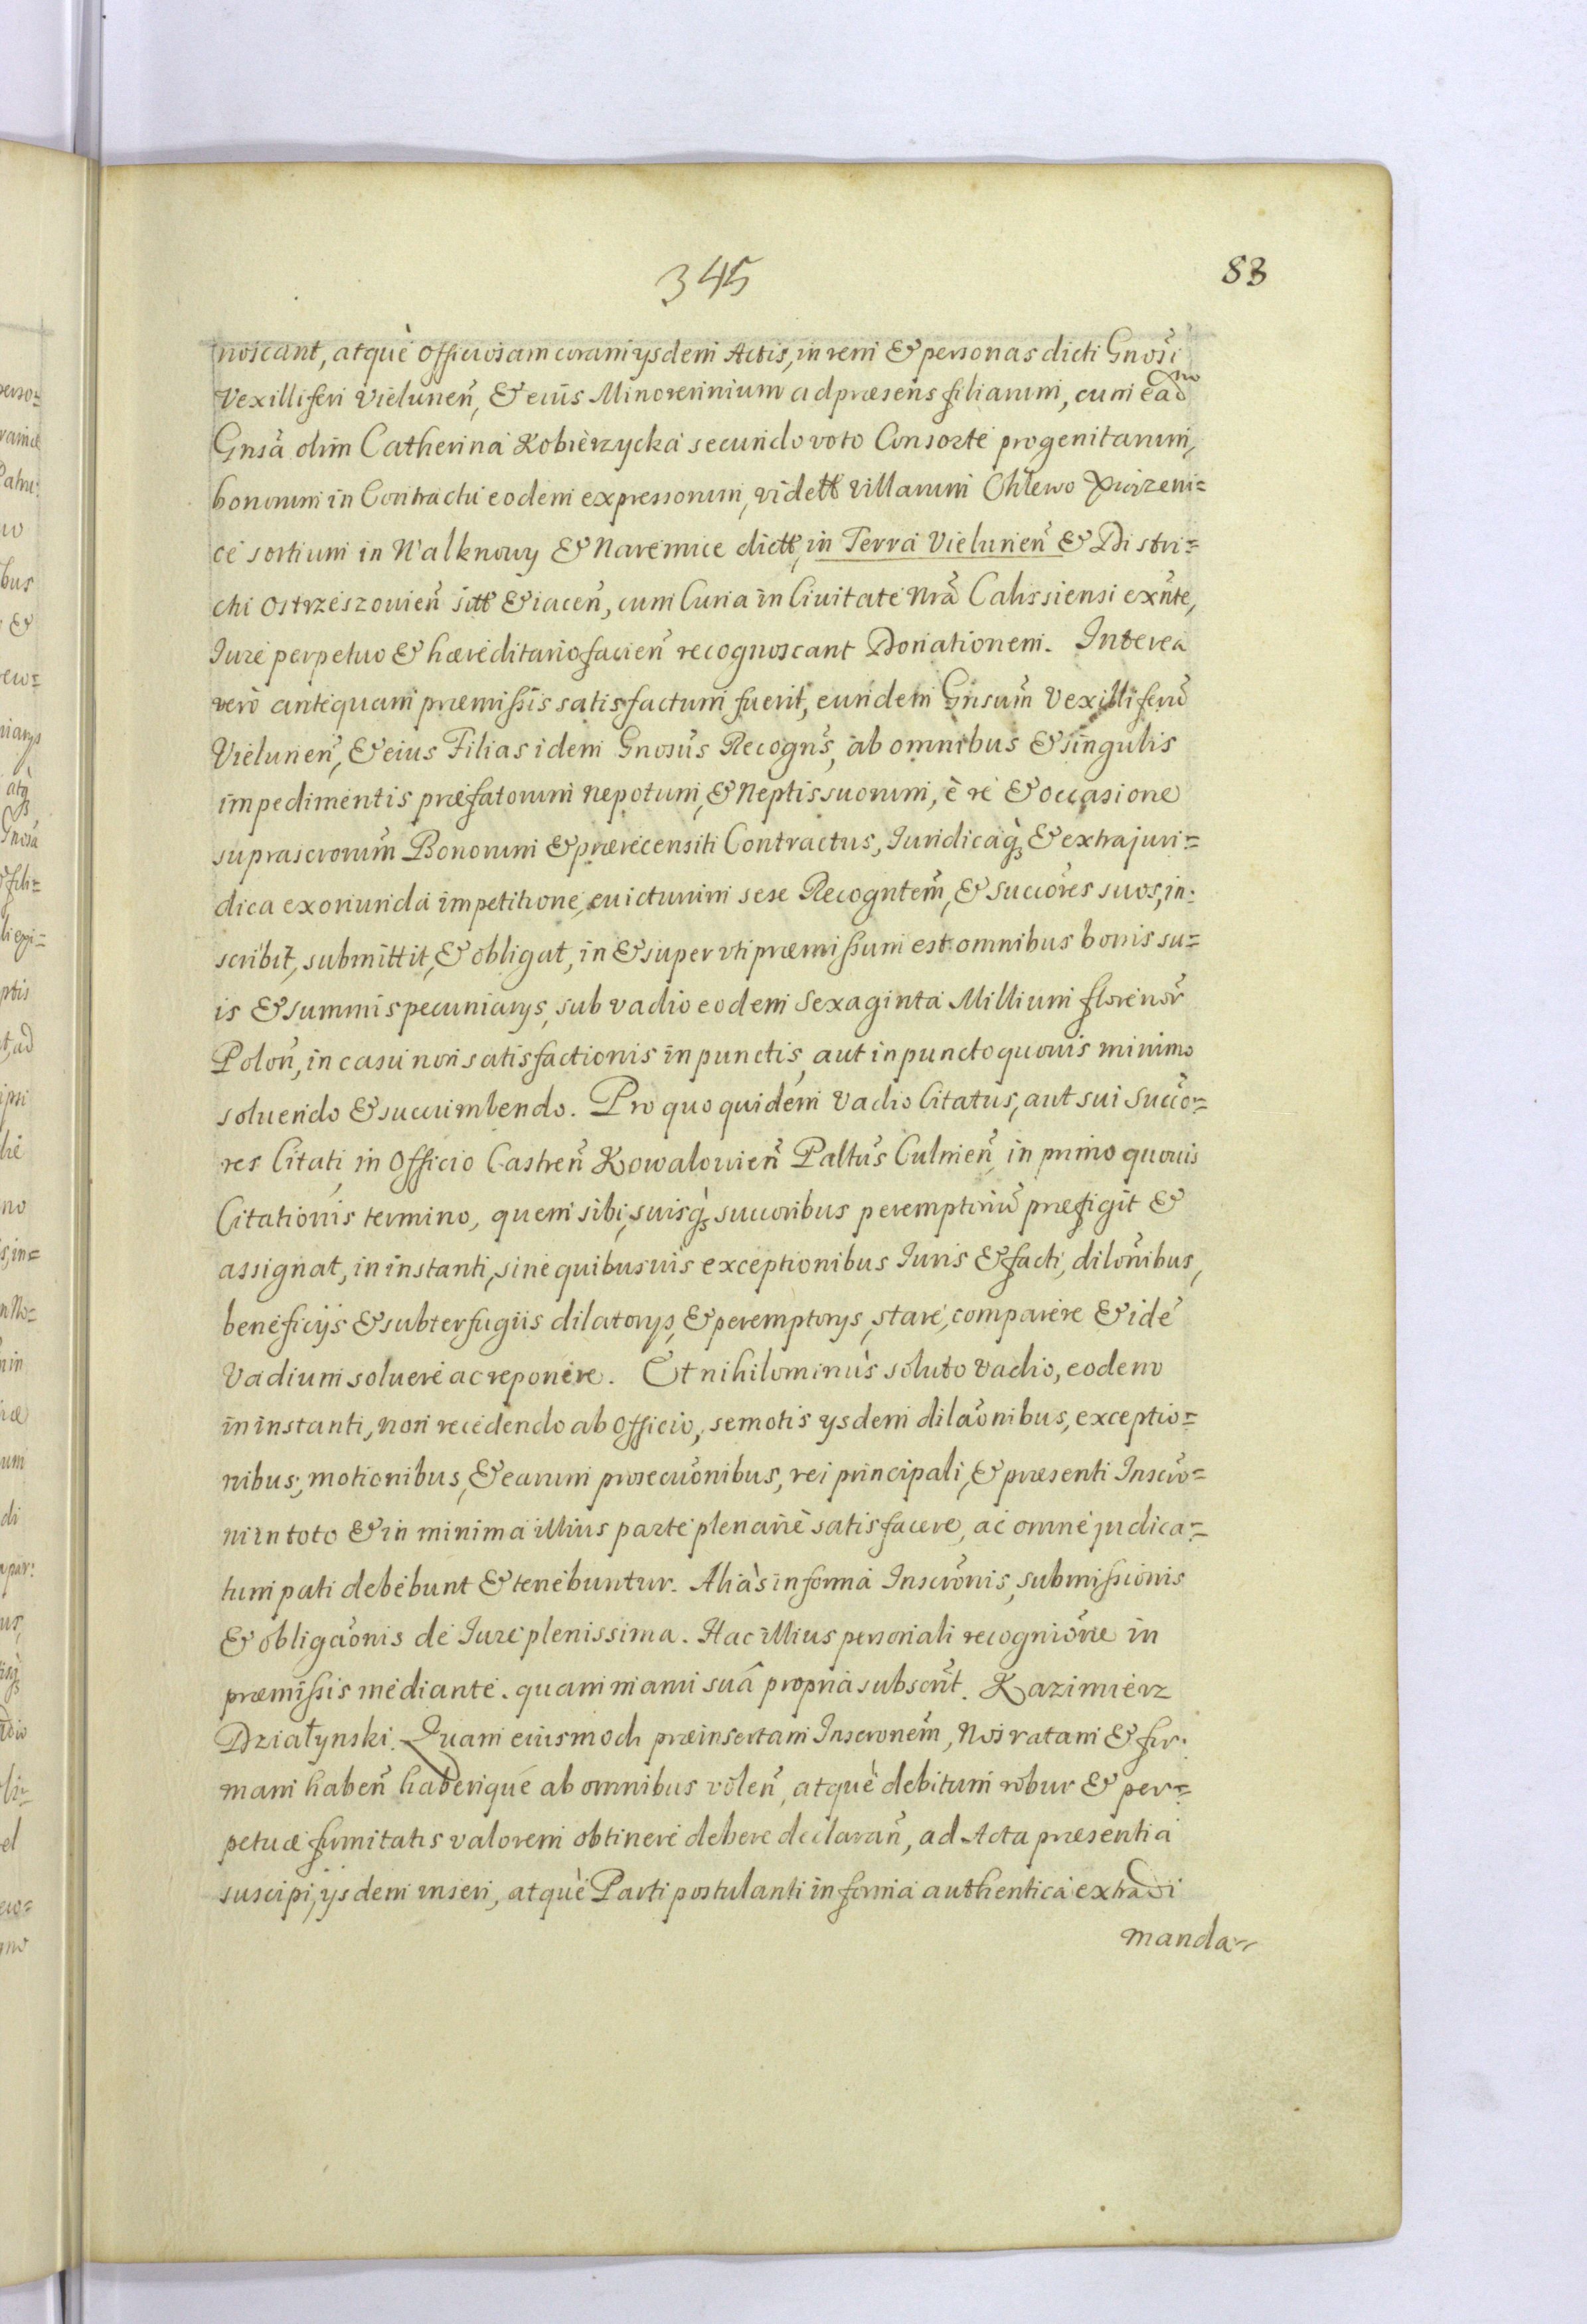 345
83
noscant, atquè officiosam coram ijsdem Actis, in rem & personas dicti Gnosi
Vexilliferi Vielunen̄, & eius Minorennium ad præsens filiarum, cum ead̄m
Gnsā olim Catherina Kobierzycka secundo voto Consorte progenitarum,
bonorum in Contractu eodem expressorum, vidett villarum Chlewo
ce sortium in Walknowy & Naremice dictt, in Terra Vielunen̄ & Distri=
cti Ostrzeszovien̄ sitt & iacen̄, cum Curia in Civitate Nrā Calissiensi exn̄te,
Iure perpetuo & hæreditario facien̄ recognoscant Donationem. Interea
verò antequam præmissis satisfactum fuerit, eundem Gnsum̄ Vexilliferū
Vielunen̄, & eius Filias idem Gnosus Recogns̄, ab omnibus & singulis
impedimentis præfatorum nepotum, & Neptis suorum, è re & occasione
suprascrorum̄ Bonorum & prærecensiti Contractus, Iuridicaq̀3 & extrajuri=
dica exoriunda impetitione, evicturum sese Recogntem̄, & succores̄ suos, in=
scribit, submittit, & obligat, in & super uti præmissum est omnibus bonis su=
is & summis pecuniarijs, sub vadio eodem Sexaginta Millium florenor̄
Polon̄, in casu non satisfactionis in punctis, aut in puncto quovis minimo
solvendo & succumbendo. Pro quo quidem vadio Citatus, aut sui Succo=
res Citati, in Officio Castren̄ Kowalovien̄ Paltūs Culmen̄, in primo quovis
Citationis termino, quem sibi, suisq̀3 succoribus peremptoriū præfigit &
assignat, in instanti, sine quibusuis exceptionibus Iuris & facti, dilōnibus,
beneficijs & subterfugiis dilatorijs, & peremptorijs, stare, comparere & idē
Vadium soluere ac reponere. Et nihilominùs soluto Vadio, eodem
in instanti, non recedendo ab Officio, semotis ijsdem dilāonibus, exceptio=
nibus, motionibus, & earum prosecūonibus, rei principali, & præsenti Inscrō=
ni in toto & in minima illius parte plenariè satisfacere, ac omne judica=
tum pati debebunt & tenebuntur. Aliàs in forma Inscrōnis, submissionis
& obligāonis de Iure plenissima. Hac illius personali recogniōne in
præmissis mediante. quam manu suâ propria subscrīt. Kazimierz
Działynski. Quam eiusmodi præinsertam Inscronem̄, Nos ratam & fir=
mam haben̄ haberique ab omnibus volen̄, atquè debitum robur & per=
petuæ firmitatis valorem obtinere debere declaran̄, ad Acta præsentia
suscipi, ijsdem inseri, atquè Parti postulanti in forma authentica extradi
manda=